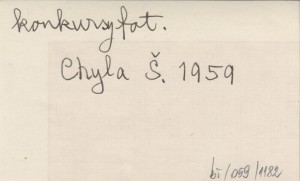 konkursy fot.
Chyla Š. 1959
bř/059/1182